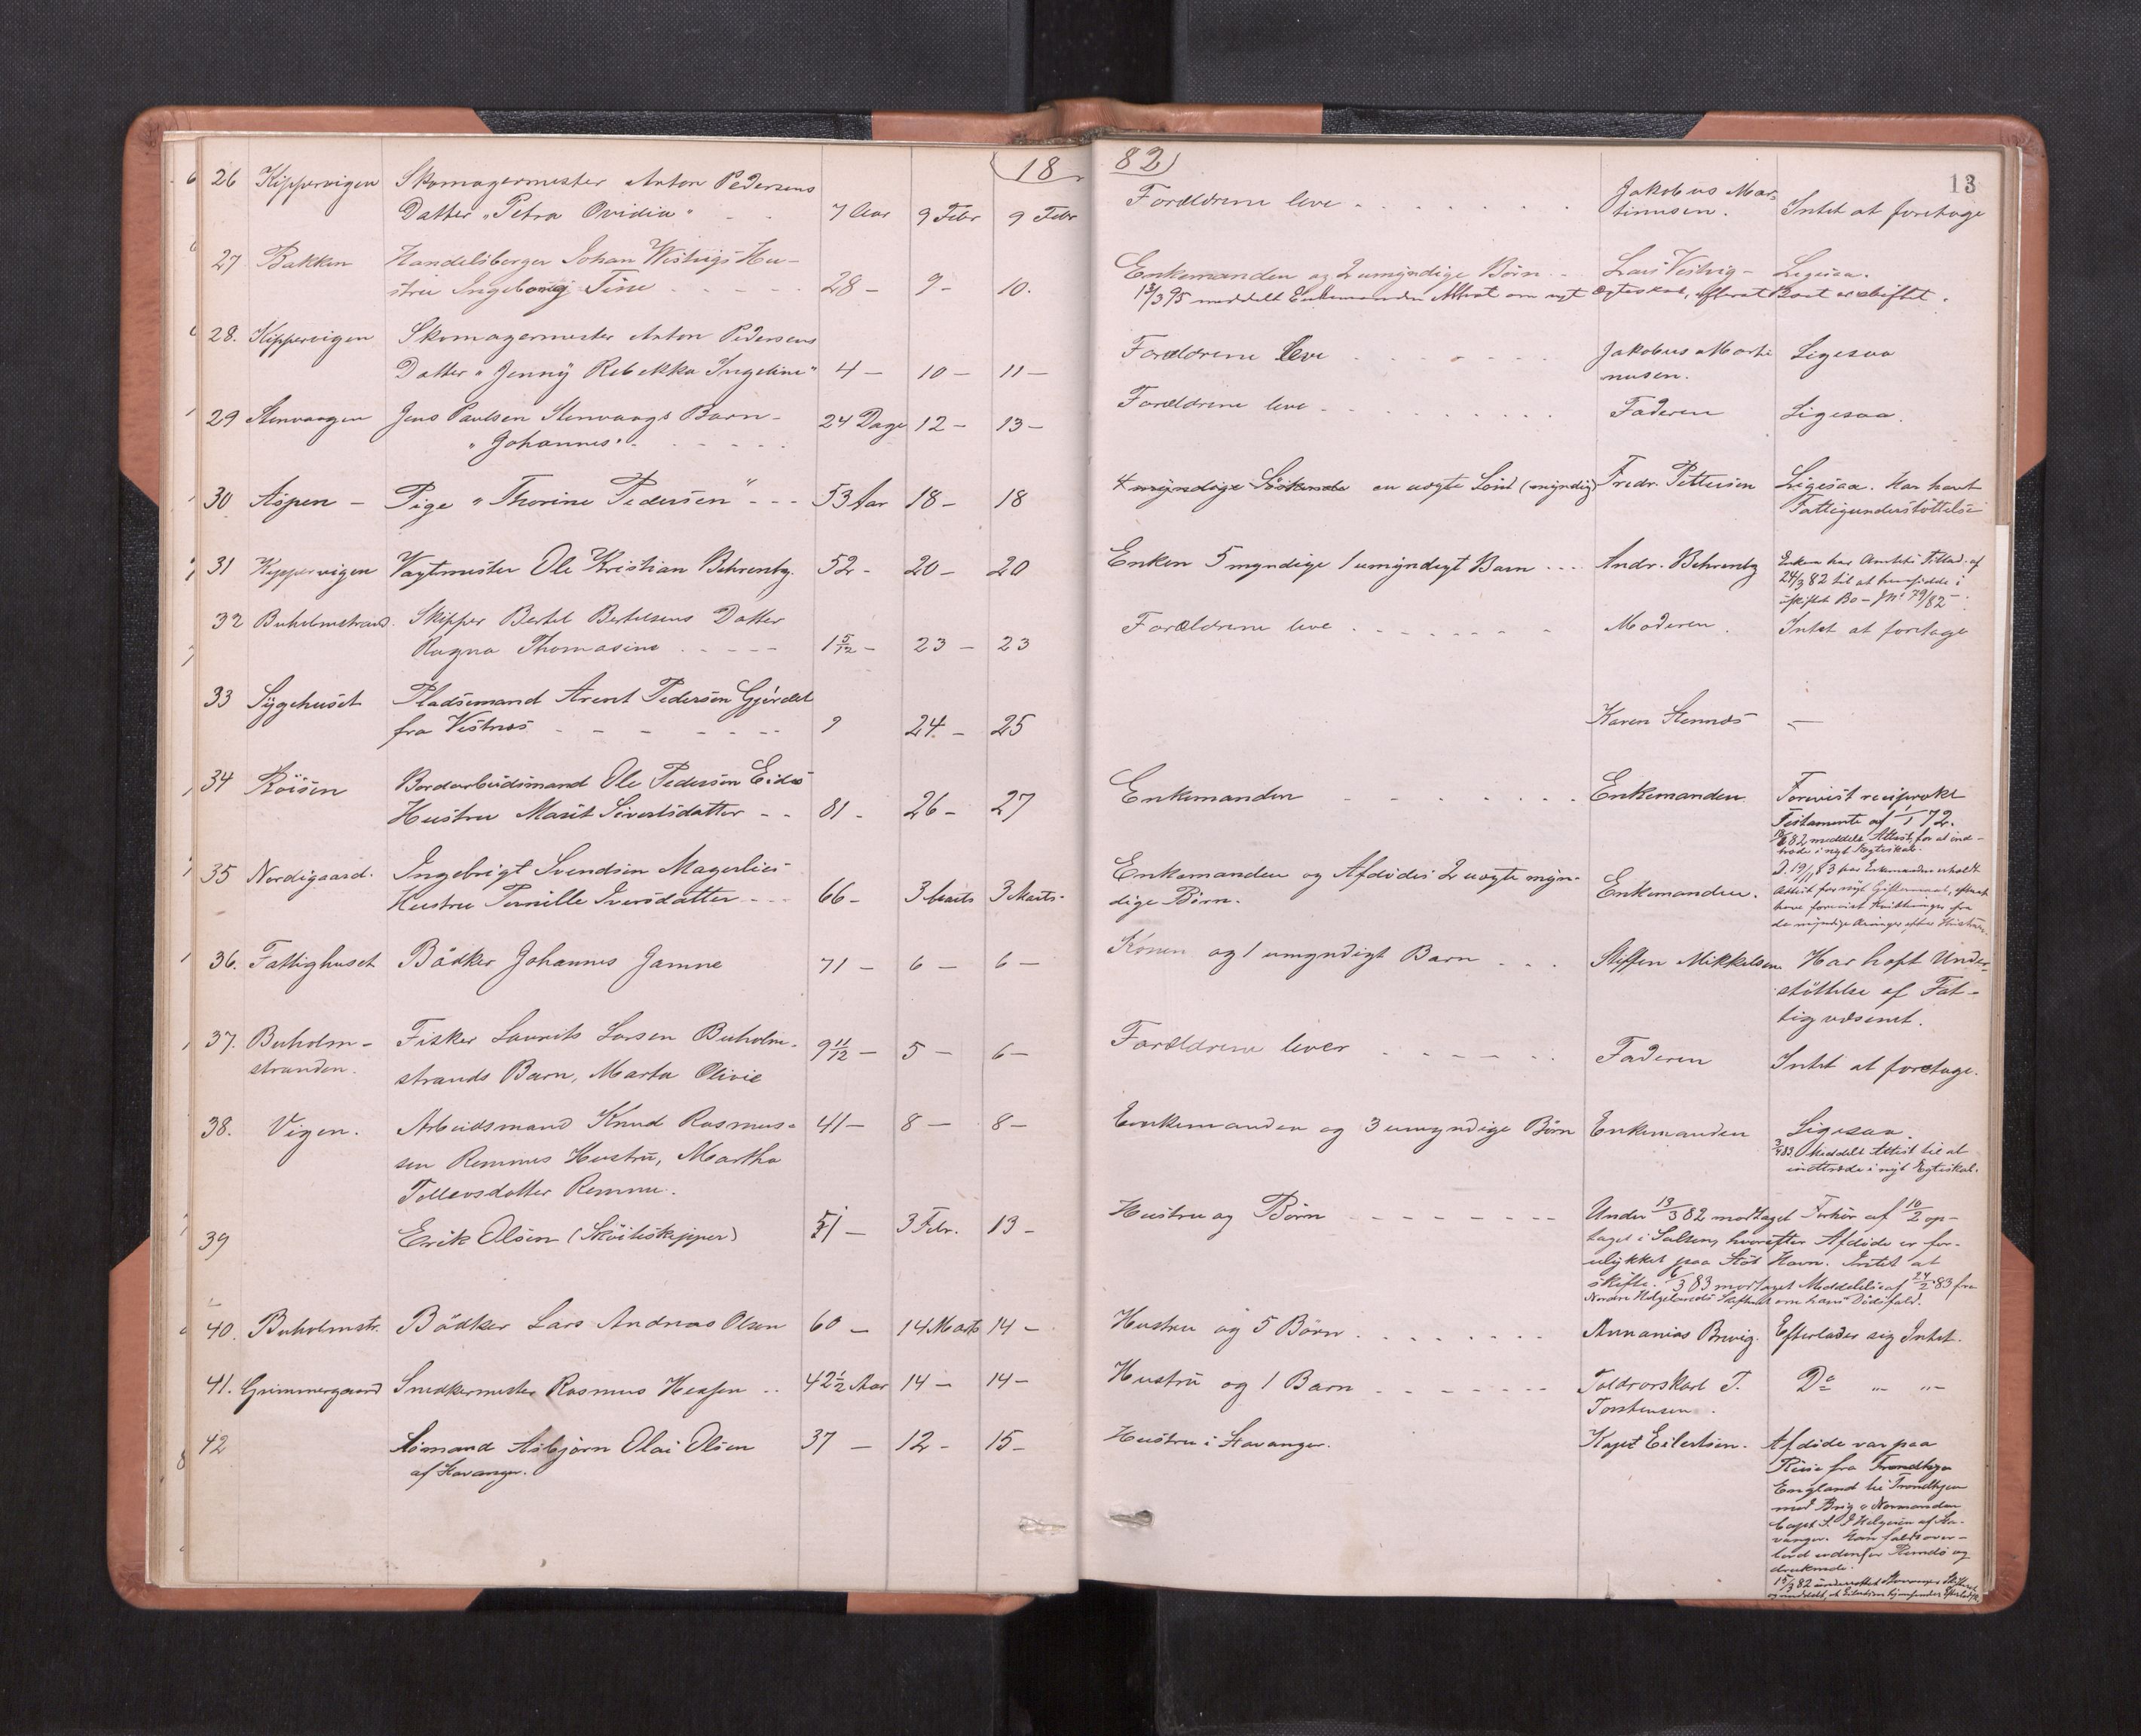 18
82
13
26 Kippervigen Skomagermester Anton Pedersens
Datter "Petra Ovidia" - - 7 Aar 9 Febr 9 Febr
Forældrene leve - - - - - - - Jakobus Mar-
tinusen. Intet at foretage
27 Bakken Handelsborger Johan Westvigs Hu-
stru Ingeborg Tine - - - - - 28 - 9 - 10.
Enkemanden og 2 umyndige Børn - - Lars Vestvig - Ligesaa.
13/3 95 meddelt Enkemanden Attest om nyt Ægteskab, efterat Boet er skiftet.
28. Kippervigen Skomagermester Anton Pedersens
Datter "Jenny Rebekka Ingeline" 4 - 10 - 11 -
Forældrene leve - - - - - - - Jakobus Marti-
nusen. Ligesaa
29 Stenvaagen Jens Paulsen Stenvaags Barn -
"Johannes" - - - - - - 24 Dage 12 - 13 -
Forældrene leve - - - - - - - Faderen Ligesaa.
30 Aspen - Pige "Thorine Pedersen" - - - 53 Aar 18 - 18
4 myndige Söskende en uægte Sön (myndig) Fredr. Pettersen Ligesaa. Har havt
Fattigunderstöttelse
31 Kippervigen Vagtmester Ole Kristian Behrentz. 52 - 20 - 20
Enken 5 myndige 1 umyndigt Barn - - - Andr. Behrentz Enken har Amtets Tillad. af
24/3 82 til at hensidde i
uskiftet Bo - JNr 79/82 -
32 Buholmstrand. Skipper Bertel Bertelsens Datter
Ragna Thomasine - - - - - 1 5/12 - 23 - 23
Forældrene leve - - - - - - - Moderen. Intet at foretage
33 Sygehuset Pladsemand Arent Pedersen Gjerdet
fra Vestnæs - - - - - - - ? 24 - 25
Karen Stennes -
34 Röisen Bordarbeidsmand Ole Pedersen Eids
Hustru Marit Sivertsdatter - - 81 - 26 - 27
Enkemanden - - - - - - - Enkemanden Forevist reciprokt
Testamente af 1/1 72.
82 meddelt Attest for at ind-
træde i nyt Ægteskab.
35 Nordigaard. Ingebrigt Svendsen Magerlies
Hustru Pernille Iversdatter - - - 66 - 3 Marts 3 Marts -
Enkemanden og Afdödes 2 uægte myn-
dige Börn. Enkemanden. D. 19/11 83 har Enkemanden erholdt
Attest for nyt Giftermaal, efterat
have forevist Kvitteringer fra
de myndige Arvinger efter Hustruen.
36. Fattighuset Bödker Johannes Jamne 71 - 6 - 6 -
Konen og 1 umyndigt Barn - - - Steffen Mikkelsen Har haft Under-
stöttelse af Fat-
tigvæsenet.
37. Buholm-
stranden. Fisker Laurits Larsen Buholm-
strands Barn, Marta Olivie 9 11/12 - 5 - 6 -
Forældrene lever - - - - - - Faderen Intet at foretage.
38. Vigen. Arbeidsmand Knud Rasmus-
sen Remmes Hustru, Martha
Tollevsdatter Remme. 41 - 8 - 8 -
Enkemanden og 3 umyndige Börn Enkemanden Ligesaa.
83 Meddelt Attest til at
indtræde i nyt Egteskab.
39 Erik Olsen (Sköiteskipper) 51 - 3 Febr. 13 -
Hustru og Börn - - - - - - - Under 13/3 82 modtaget Forhör af 10/2 op-
taget i Salten, hvorefter Afdöde er for-
ulykket paa Stöt Havn. Intet at
skifte. /3 83 modtaget Meddelelse af 24/2 83 fra
Nordre Helgelands Skifteret om hans Dödsfald.
40. Buholmstr. Bödker Lars Andreas Olsen 60 - 14 Marts 14 -
Hustru og 5 Börn - - - - - - - Annanias Brevig. Efterlader sig Intet.
41. Grimmergaard Snedkermester Rasmus Hessen - - 42 1/2 Aar 14 - 14 -
Hustru og 1 Barn - - - - - - - Toldrorskarl T.
Torstensen. Do " "
42 Sömand Asbjörn Olai Olsen
af Stavanger. 37 - 12 - 15 -
Hustru i Stavanger. Kapt Eilertsen. Afdöde var paa
Reise fra Trondhjem
England til Trondhjem
med Brig "Normanden
Capt. S. J Helgesen af Sta-
vanger. Han faldt over-
bord udenfor Rundö og
druknede.
15/3 82 underrettet Stavanger Skifteret